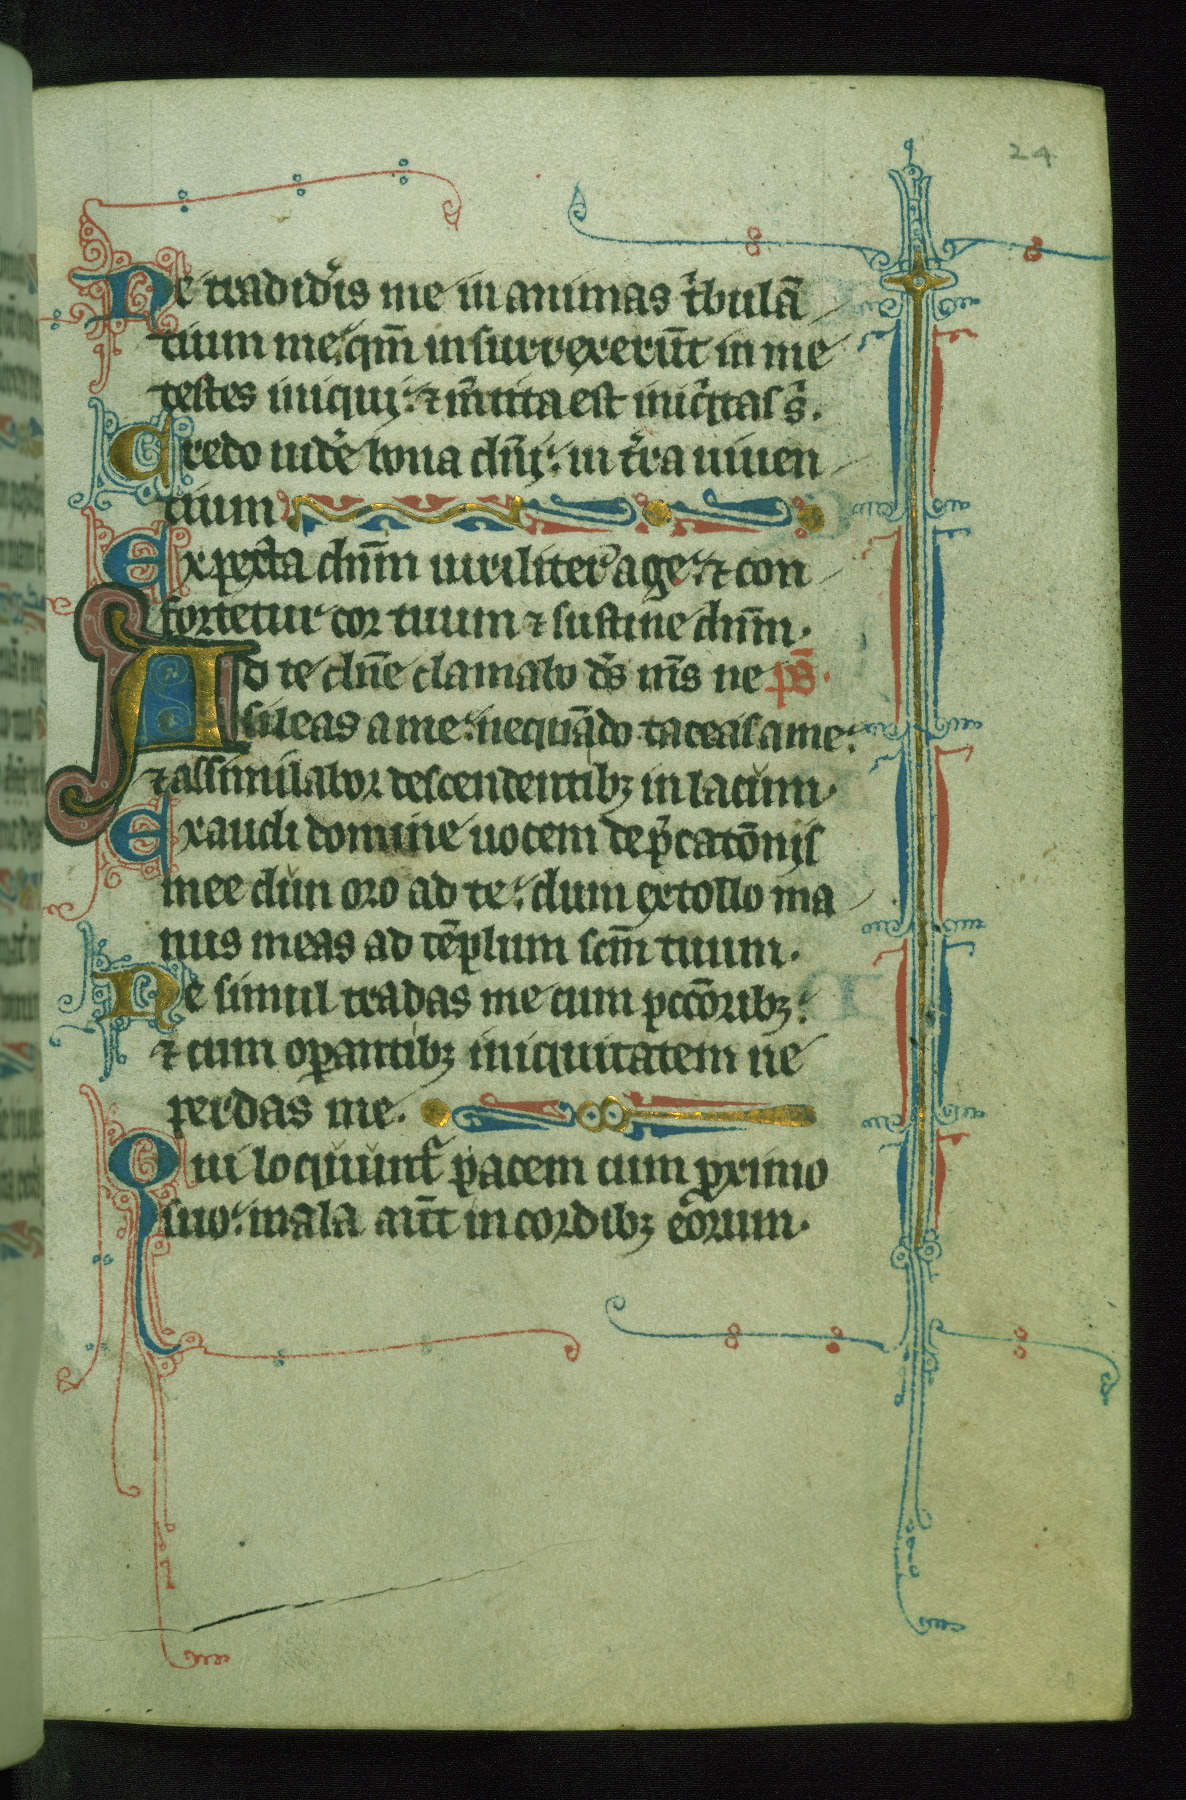 24
Ne tradid'is me in animas t'bulā
tium me: qm̄ insurrexerūt in me
testes iniqui: ⁊ m̄tita est iniq'tas s'.
Credo uid'e bona dn̄i: in t'ra uiuen
tium
Expecta dnm̄ uiriliter age: ⁊ con
fortetur cor tuum ⁊ sustine dnm̄.
Ad te dn̄e clamabo ds̄ ms̄ ne ps̄.
sileas a me: nequādo taceas a me:
⁊ assimilabor descendentibꝫ in lacum.
Exaudi domine uocem dep̄catōnis
mee dum oro ad te: dum extollo ma
nus meas ad tēplum scm̄ tuum.
Ne simul tradas me cum pccōribꝫ:
⁊ cum oꝑantibꝫ iniquitatem ne
perdas me.
Qui loquunt' pacem cum ꝓximo
suo: mala aūt in cordibꝫ eorum.